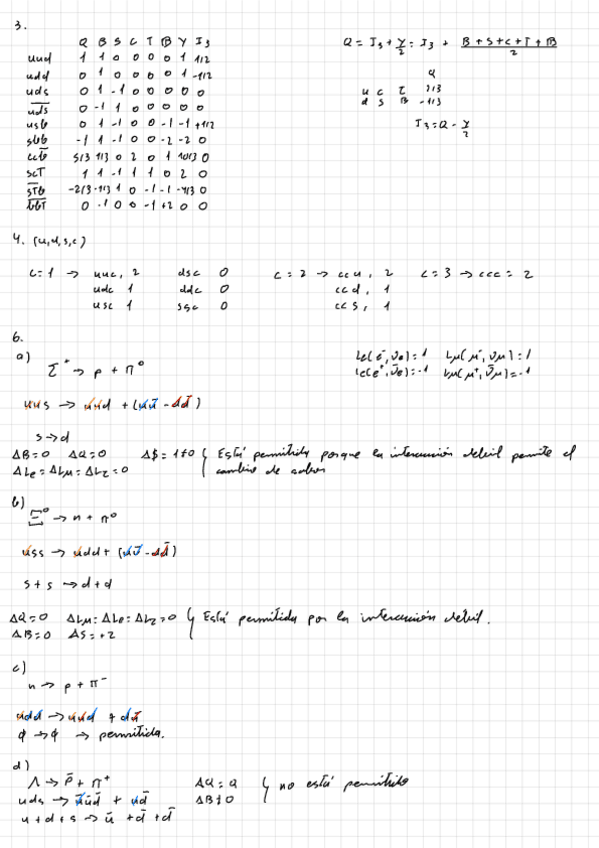 3.
Q B S C T B Y I₃
uud 1 1 0 0 0 0 1 1/2
udd 0 1 0 0 0 0 1 -1/2
uds 0 1 -1 0 0 0 0 0
u̅d̅s̅ 0 -1 1 0 0 0 0 0
usb 0 1 -1 0 0 -1 -1 +1/2
sbb -1 1 -1 0 0 -2 -2 0
5/3 1/3 0 2 0 1 10/3 0
scT 1 1 -1 1 1 0 2 0
-2/3 -1/3 1 0 -1 -1 -4/3 0
b̅b̅T̅ 0 -1 0 0 -1 +2 0 0
Q = I₃ + Y/2 = I₃ + (B+S+C+T+B)/2
Q
u c t 2/3
d s B -1/3
I₃ = Q - Y/2
4. (u,d,s,c)
c=1 → uuc, 2 dsc 0 c=2 → ccu, 2 c=3 → ccc = 2
udc 1 ddc 0 ccd, 1
usc 1 ssc 0 ccs, 1
6.
a)
Σ⁺ → p + π⁰
Le(e⁻,νe)=1 Lμ(μ⁻,νμ)=1
Le(e⁺,ν̅e)=-1 Lμ(μ⁺,ν̅μ)=-1
uus → uud + (uu̅ - dd̅)
s→d
ΔB=0 ΔQ=0 ΔS=1≠0 { Está permitida porque la interacción débil permite el
ΔLe=ΔLμ=ΔLz=0 cambio de sabor
b)
Ξ⁰ → n + π⁰
uss → udd + (uu̅ - dd̅)
s+s → d+d
ΔQ=0 ΔLμ=ΔLe=ΔLz=0 { Está permitida por la interacción débil.
ΔB=0 ΔS=+2
c)
n → p + π⁻
udd → uud + du̅
ϕ → ϕ → permitida.
d)
Λ → p̅ + π⁺ ΔQ=Q { no está permitido
uds → u̅u̅d̅ + ud̅ ΔB≠0
u+d+s → u̅ + d̅ + d̅